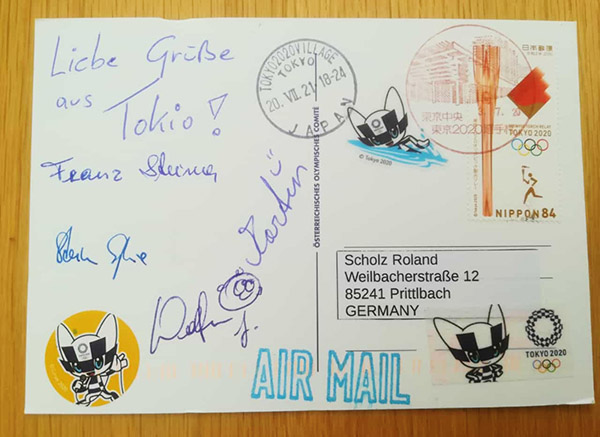 Liebe Grüße
aus Tokio!
Franz
TOKYO2020VILLAGE
TOKYO
20. VII. 21. 18-24
JAPAN
© Tokyo 2020
ÖSTERREICHISCHES OLYMPISCHES COMITÉ
東京中央
東京2020選手村
日本郵便
TOKYO 2020
NIPPON 84
Scholz Roland
Weilbacherstraße 12
85241 Prittlbach
GERMANY
TOKYO 2020
AIR MAIL